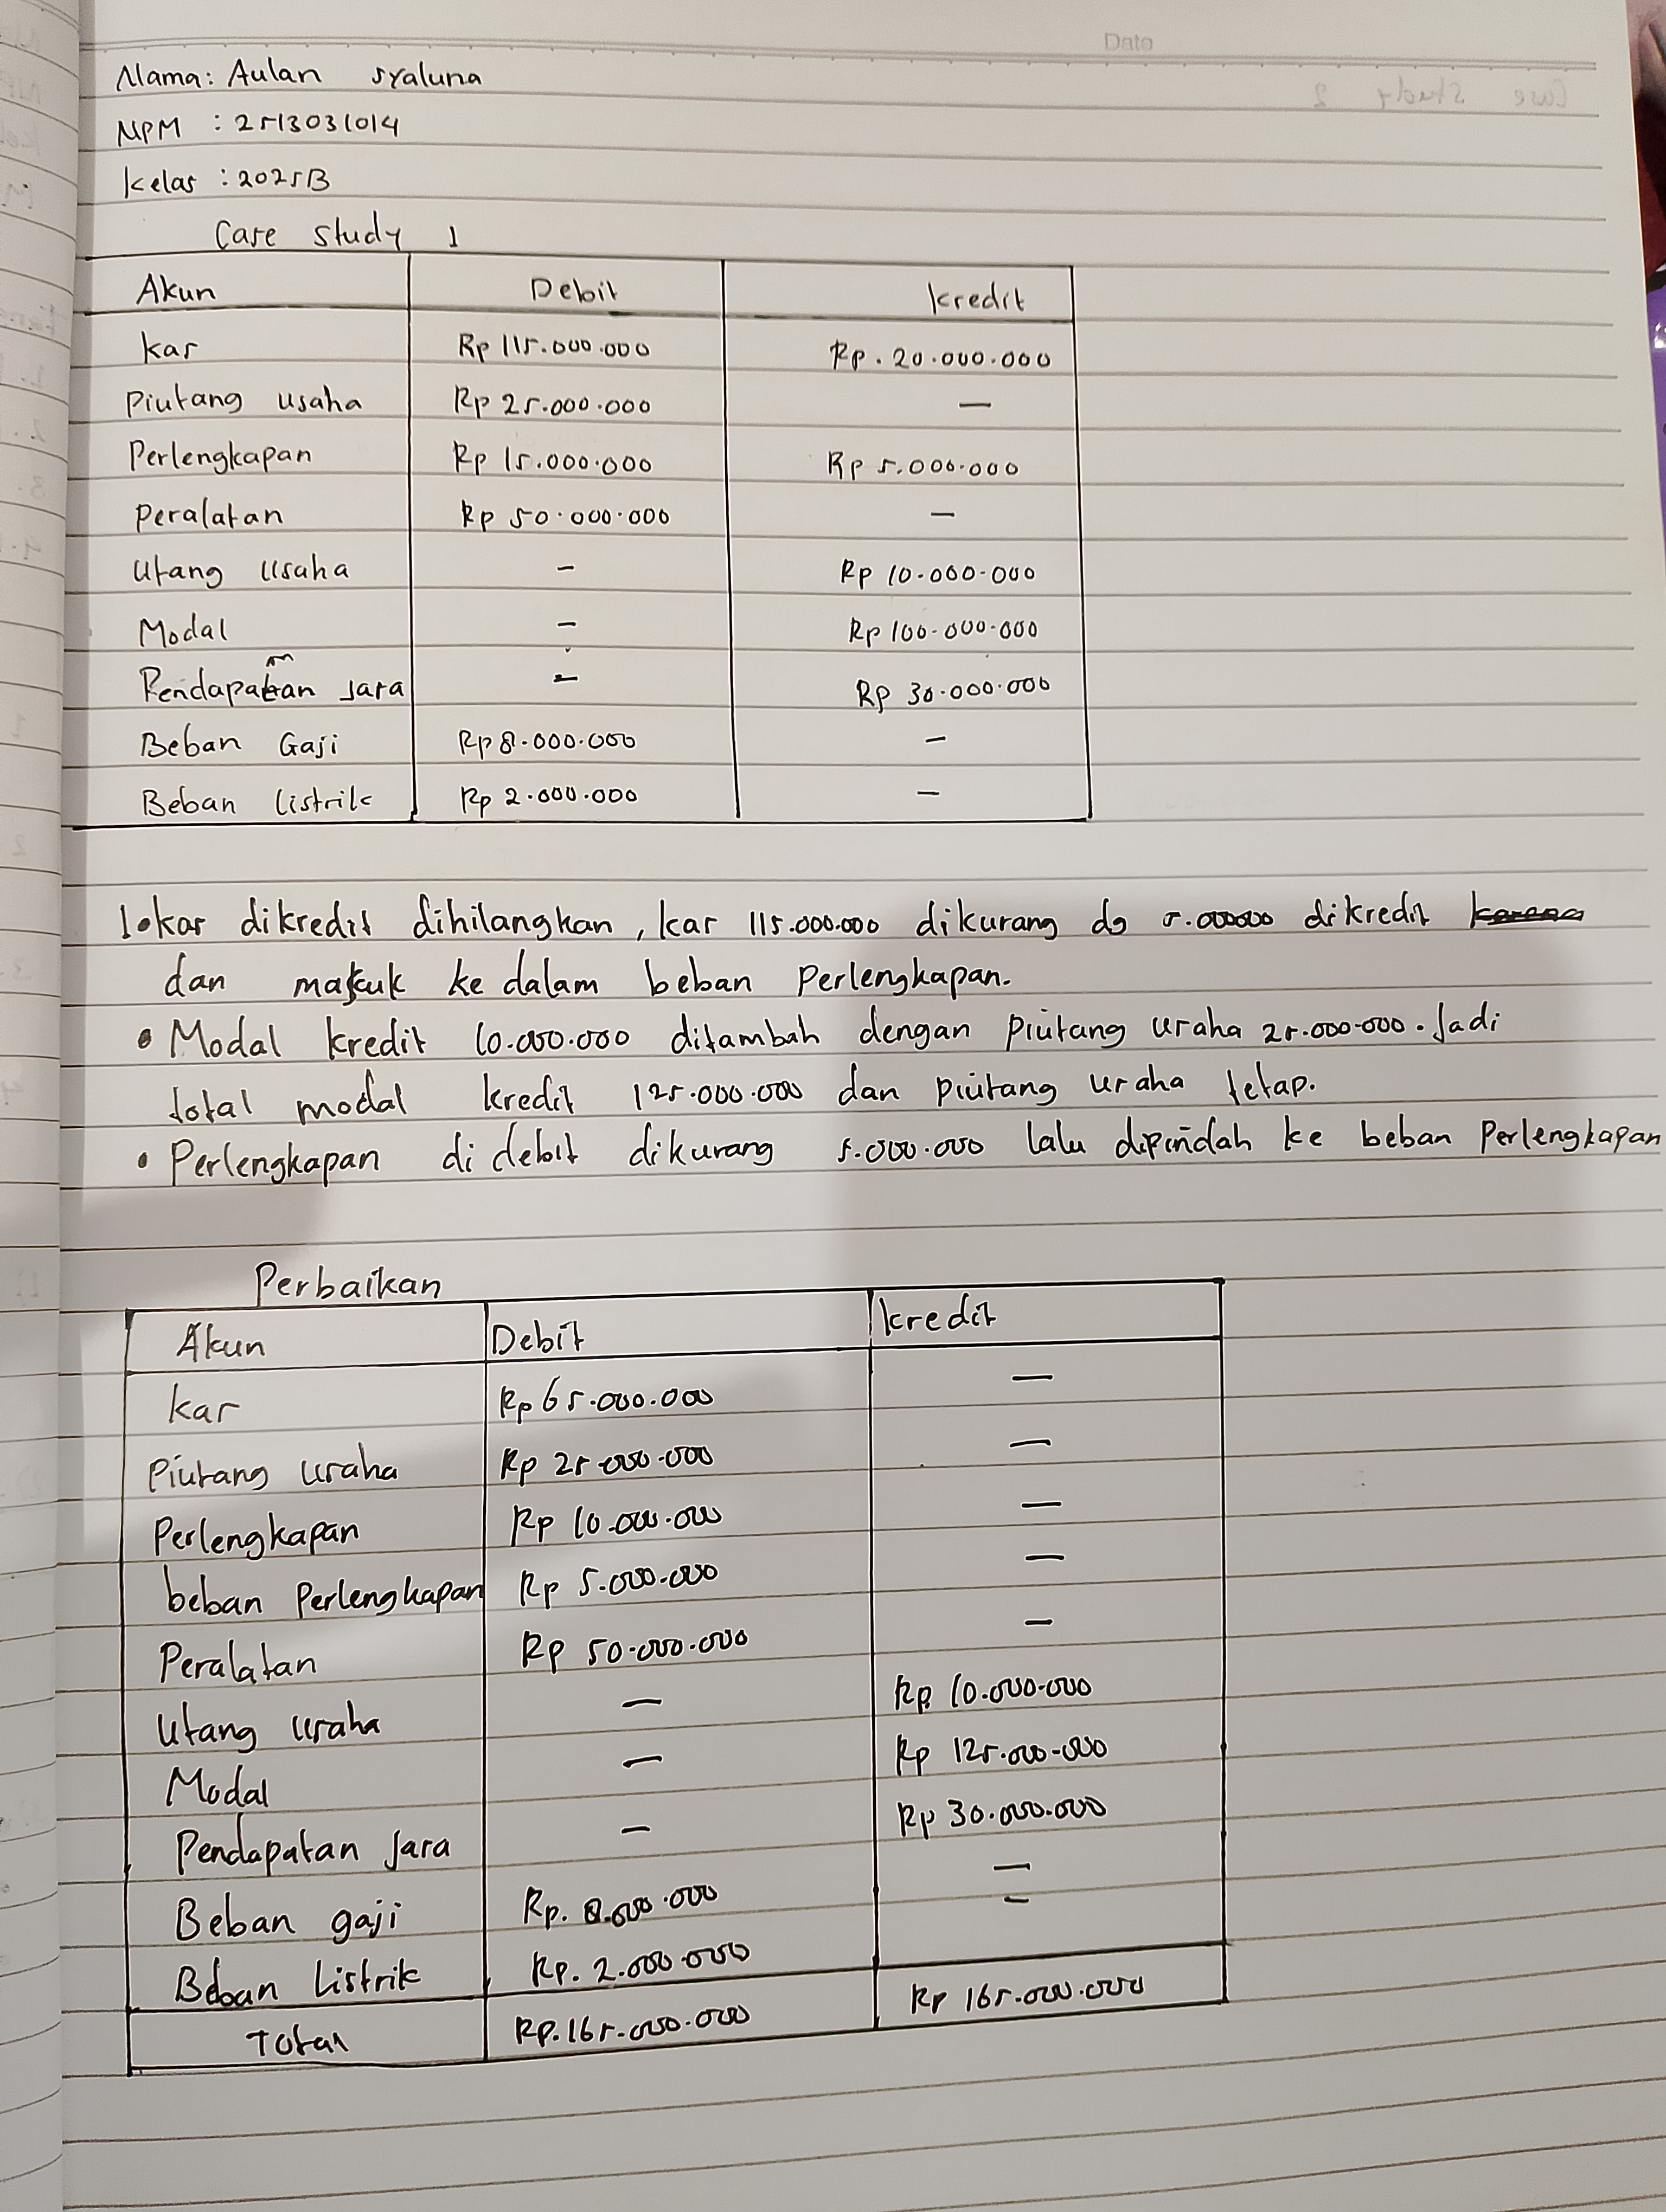 Dato
Nama: Aulan syaluna
NPM : 2513031014
Kelas : 2025B
Case study 1
Akun Debit Kredit
Kas Rp 115.000.000 Rp. 20.000.000
Piutang usaha Rp 25.000.000 —
Perlengkapan Rp 15.000.000 Rp 5.000.000
Peralatan Rp 50.000.000 —
Utang Usaha - Rp 10.000.000
Modal - Rp 100.000.000
Pendapatan Jasa - Rp 30.000.000
Beban Gaji Rp 8.000.000 —
Beban listrik Rp 2.000.000 —
1. kas dikredit dihilangkan, kas 115.000.000 dikurang dg 5.000000 dikredit
dan masuk ke dalam beban Perlengkapan.
• Modal kredit 10.000.000 ditambah dengan piutang usaha 25.000.000. Jadi
total modal kredit 125.000.000 dan piutang usaha tetap.
• Perlengkapan di debit dikurang 5.000.000 lalu dipindah ke beban Perlengkapan
Perbaikan
Akun Debit Kredit
Kas Rp 65.000.000 —
Piutang usaha Rp 25.000.000 —
Perlengkapan Rp 10.000.000 —
beban Perlengkapan Rp 5.000.000 —
Peralatan Rp 50.000.000 —
Utang usaha — Rp 10.000.000
Modal — Rp 125.000.000
Pendapatan Jasa — Rp 30.000.000
Beban gaji Rp. 8.000.000 —
Beban Listrik Rp. 2.000.000 -
Total Rp. 165.000.000 Rp 165.000.000